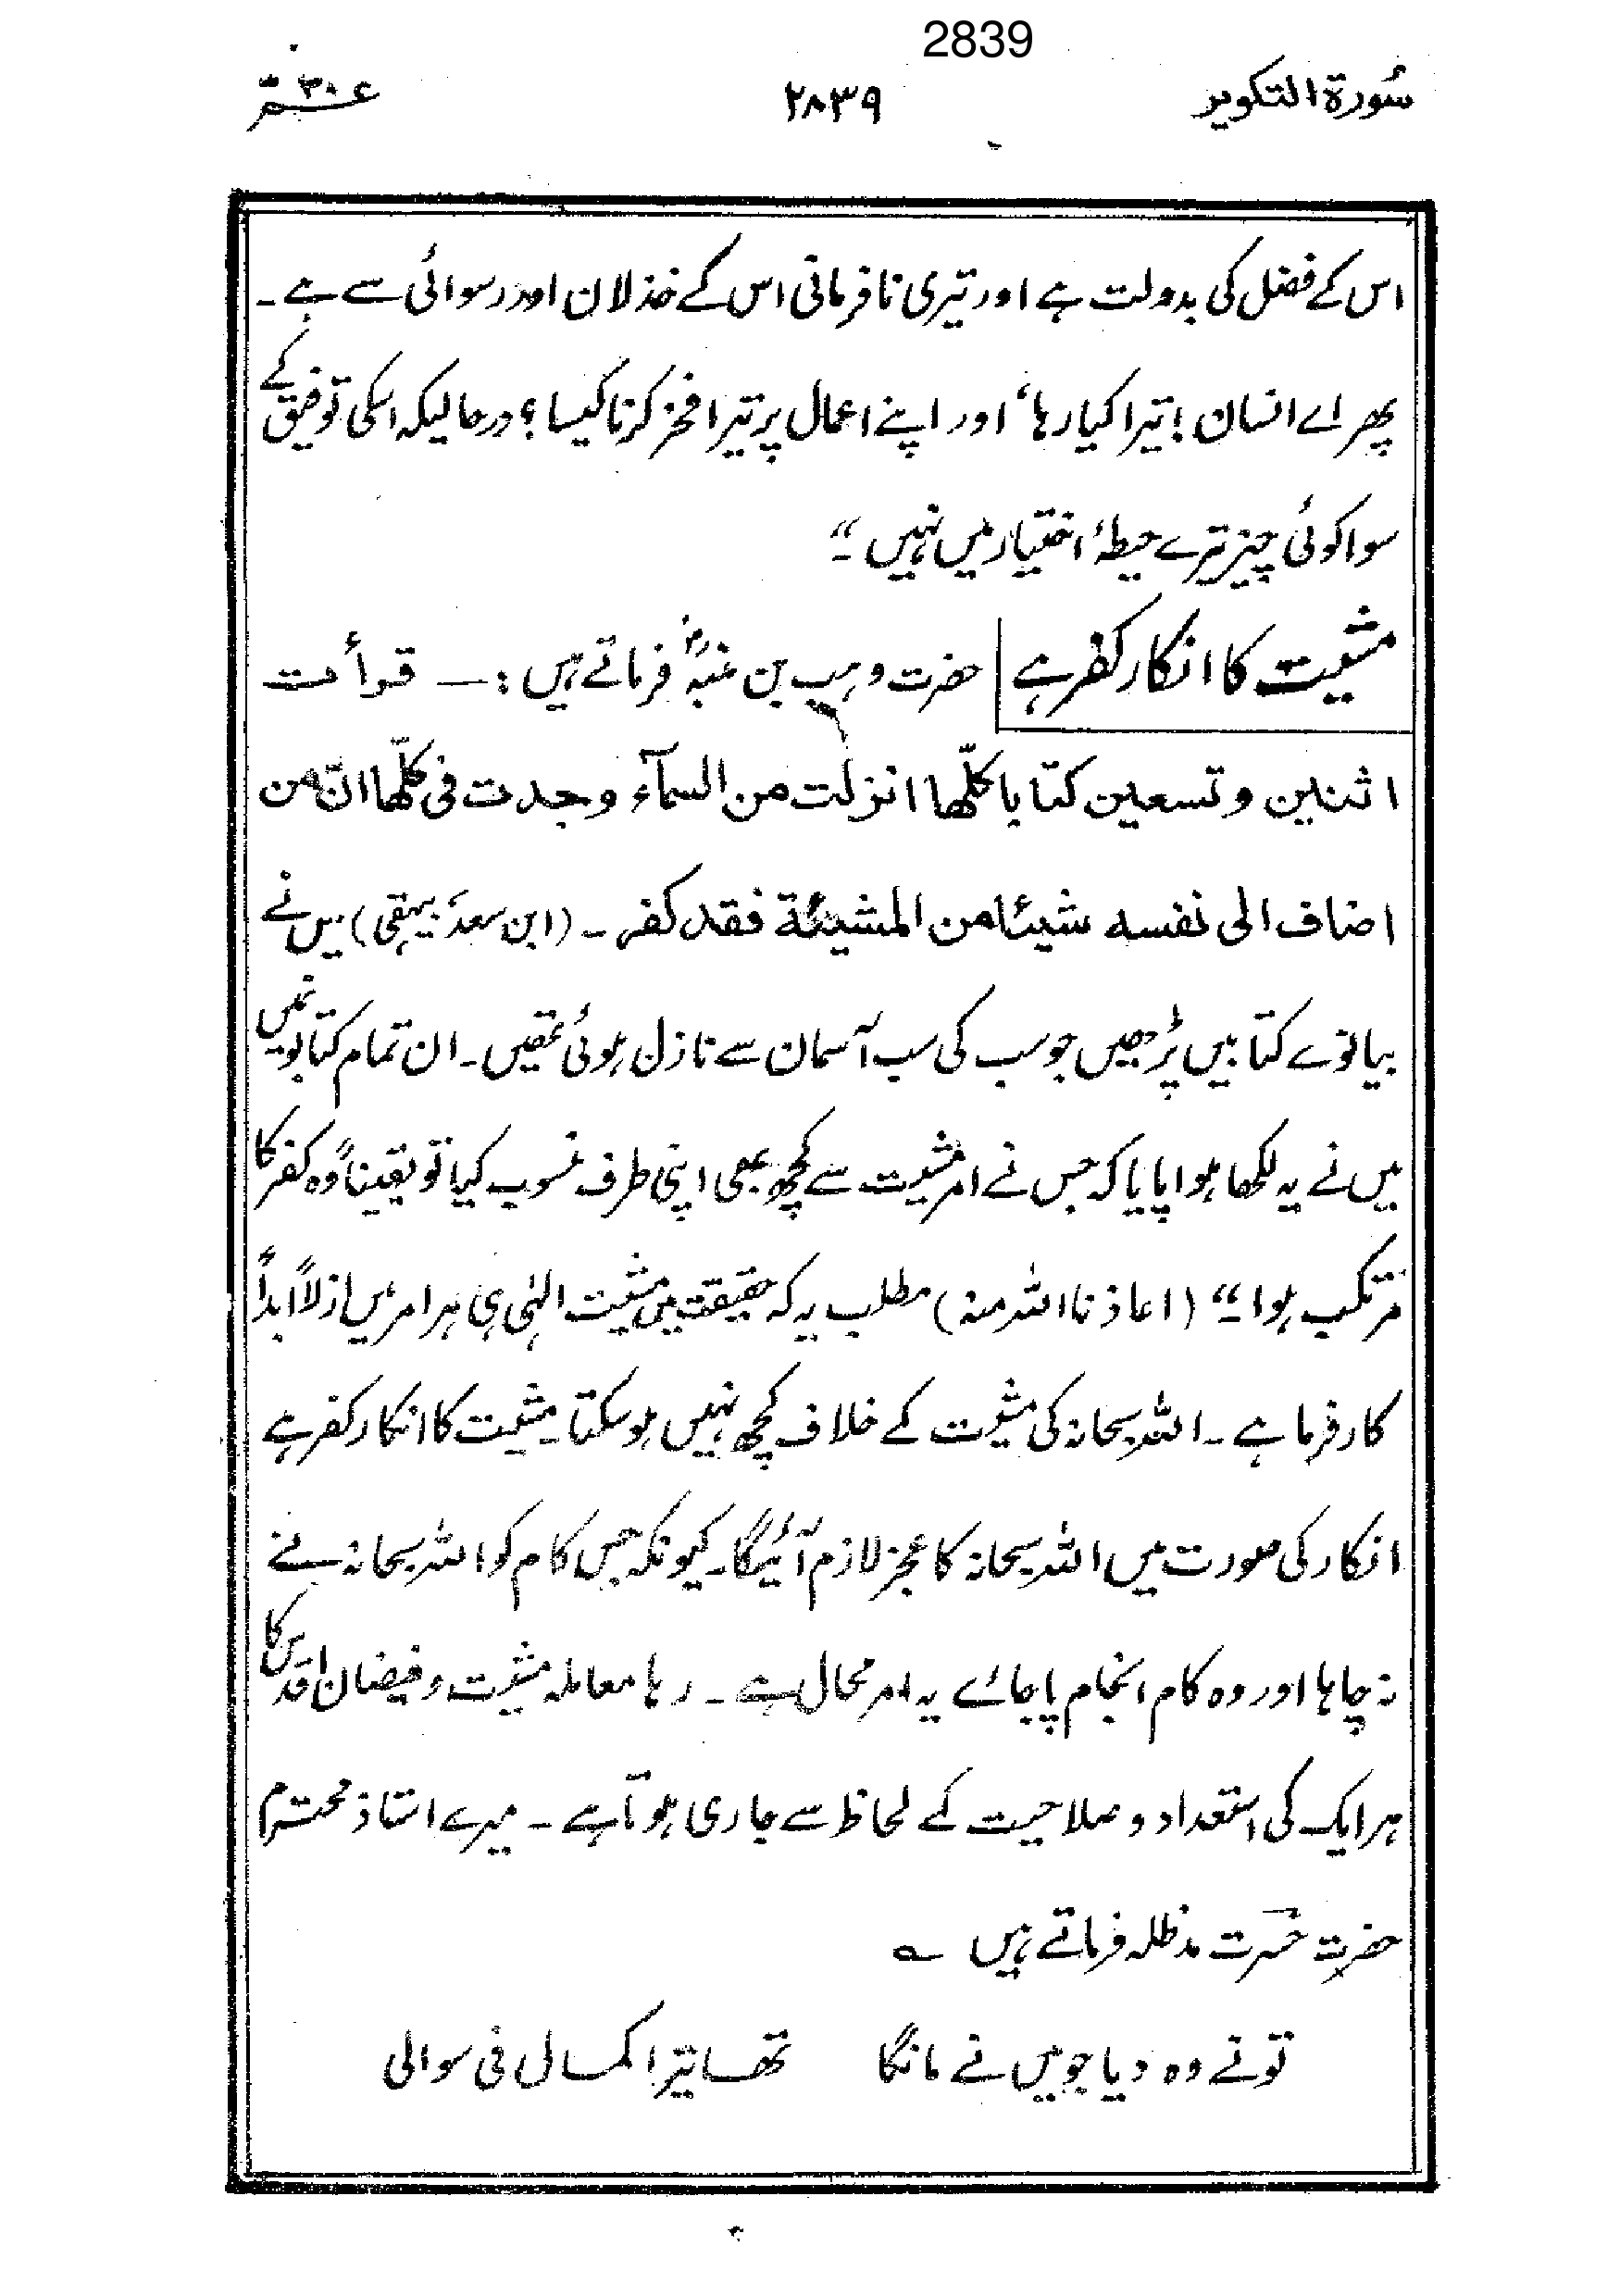 2839
سُورة التکویر ۲۸۳۹ عمّ ۳۰
اس کے فضل کی بدولت ہے اور تیری نافرمانی اس کے خذلان اور رسوائی سے ہے۔
پھر اے انسان! تیرا کیا رہا، اور اپنے اعمال پر تیرا فخر کرنا کیسا؟ درحالیکہ اسکی توفیق کے
سوا کوئی چیز تیرے حیطۂ اختیار میں نہیں۔“
مشیت کا انکار کفر ہے حضرت وہب بن منبہؒ فرماتے ہیں:— قرأت
اثنین و تسعین کتابا کلّھا انزلت من السمآء وجدت فی کلّھا انّ من
اضاف الی نفسہ شیئا من المشیئة فقد کفر۔ (ابن سعد، بیہقی) میں نے
بیانوے کتابیں پڑھیں جو سب کی سب آسمان سے نازل ہوئی تھیں۔ ان تمام کتابوں میں
میں نے یہ لکھا ہوا پایا کہ جس نے امر مشیت سے کچھ بھی اپنی طرف منسوب کیا تو یقیناً وہ کفر کا
مرتکب ہوا۔“ (اعاذنا اللہ منہ) مطلب یہ کہ حقیقت میں مشیت الٰہی ہی ہر امر میں ازلاً ابداً
کارفرما ہے۔ اللہ سبحانہ کی مشیت کے خلاف کچھ نہیں ہو سکتا۔ مشیت کا انکار کفر ہے
انکار کی صورت میں اللہ سبحانہ کا عجز لازم آئیگا۔ کیونکہ جس کام کو اللہ سبحانہ نے
نہ چاہا اور وہ کام انجام پا جائے یہ امر محال ہے۔ رہا معاملہ مشیت و فیضان اقدس کا
ہر ایک کی استعداد و صلاحیت کے لحاظ سے جاری ہوتا ہے۔ میرے استاذ محترم
حضرت حسرت مدظلہ فرماتے ہیں ؎
تو نے وہ دیا جو میں نے مانگا تھا تیرا کمال فی سوالی